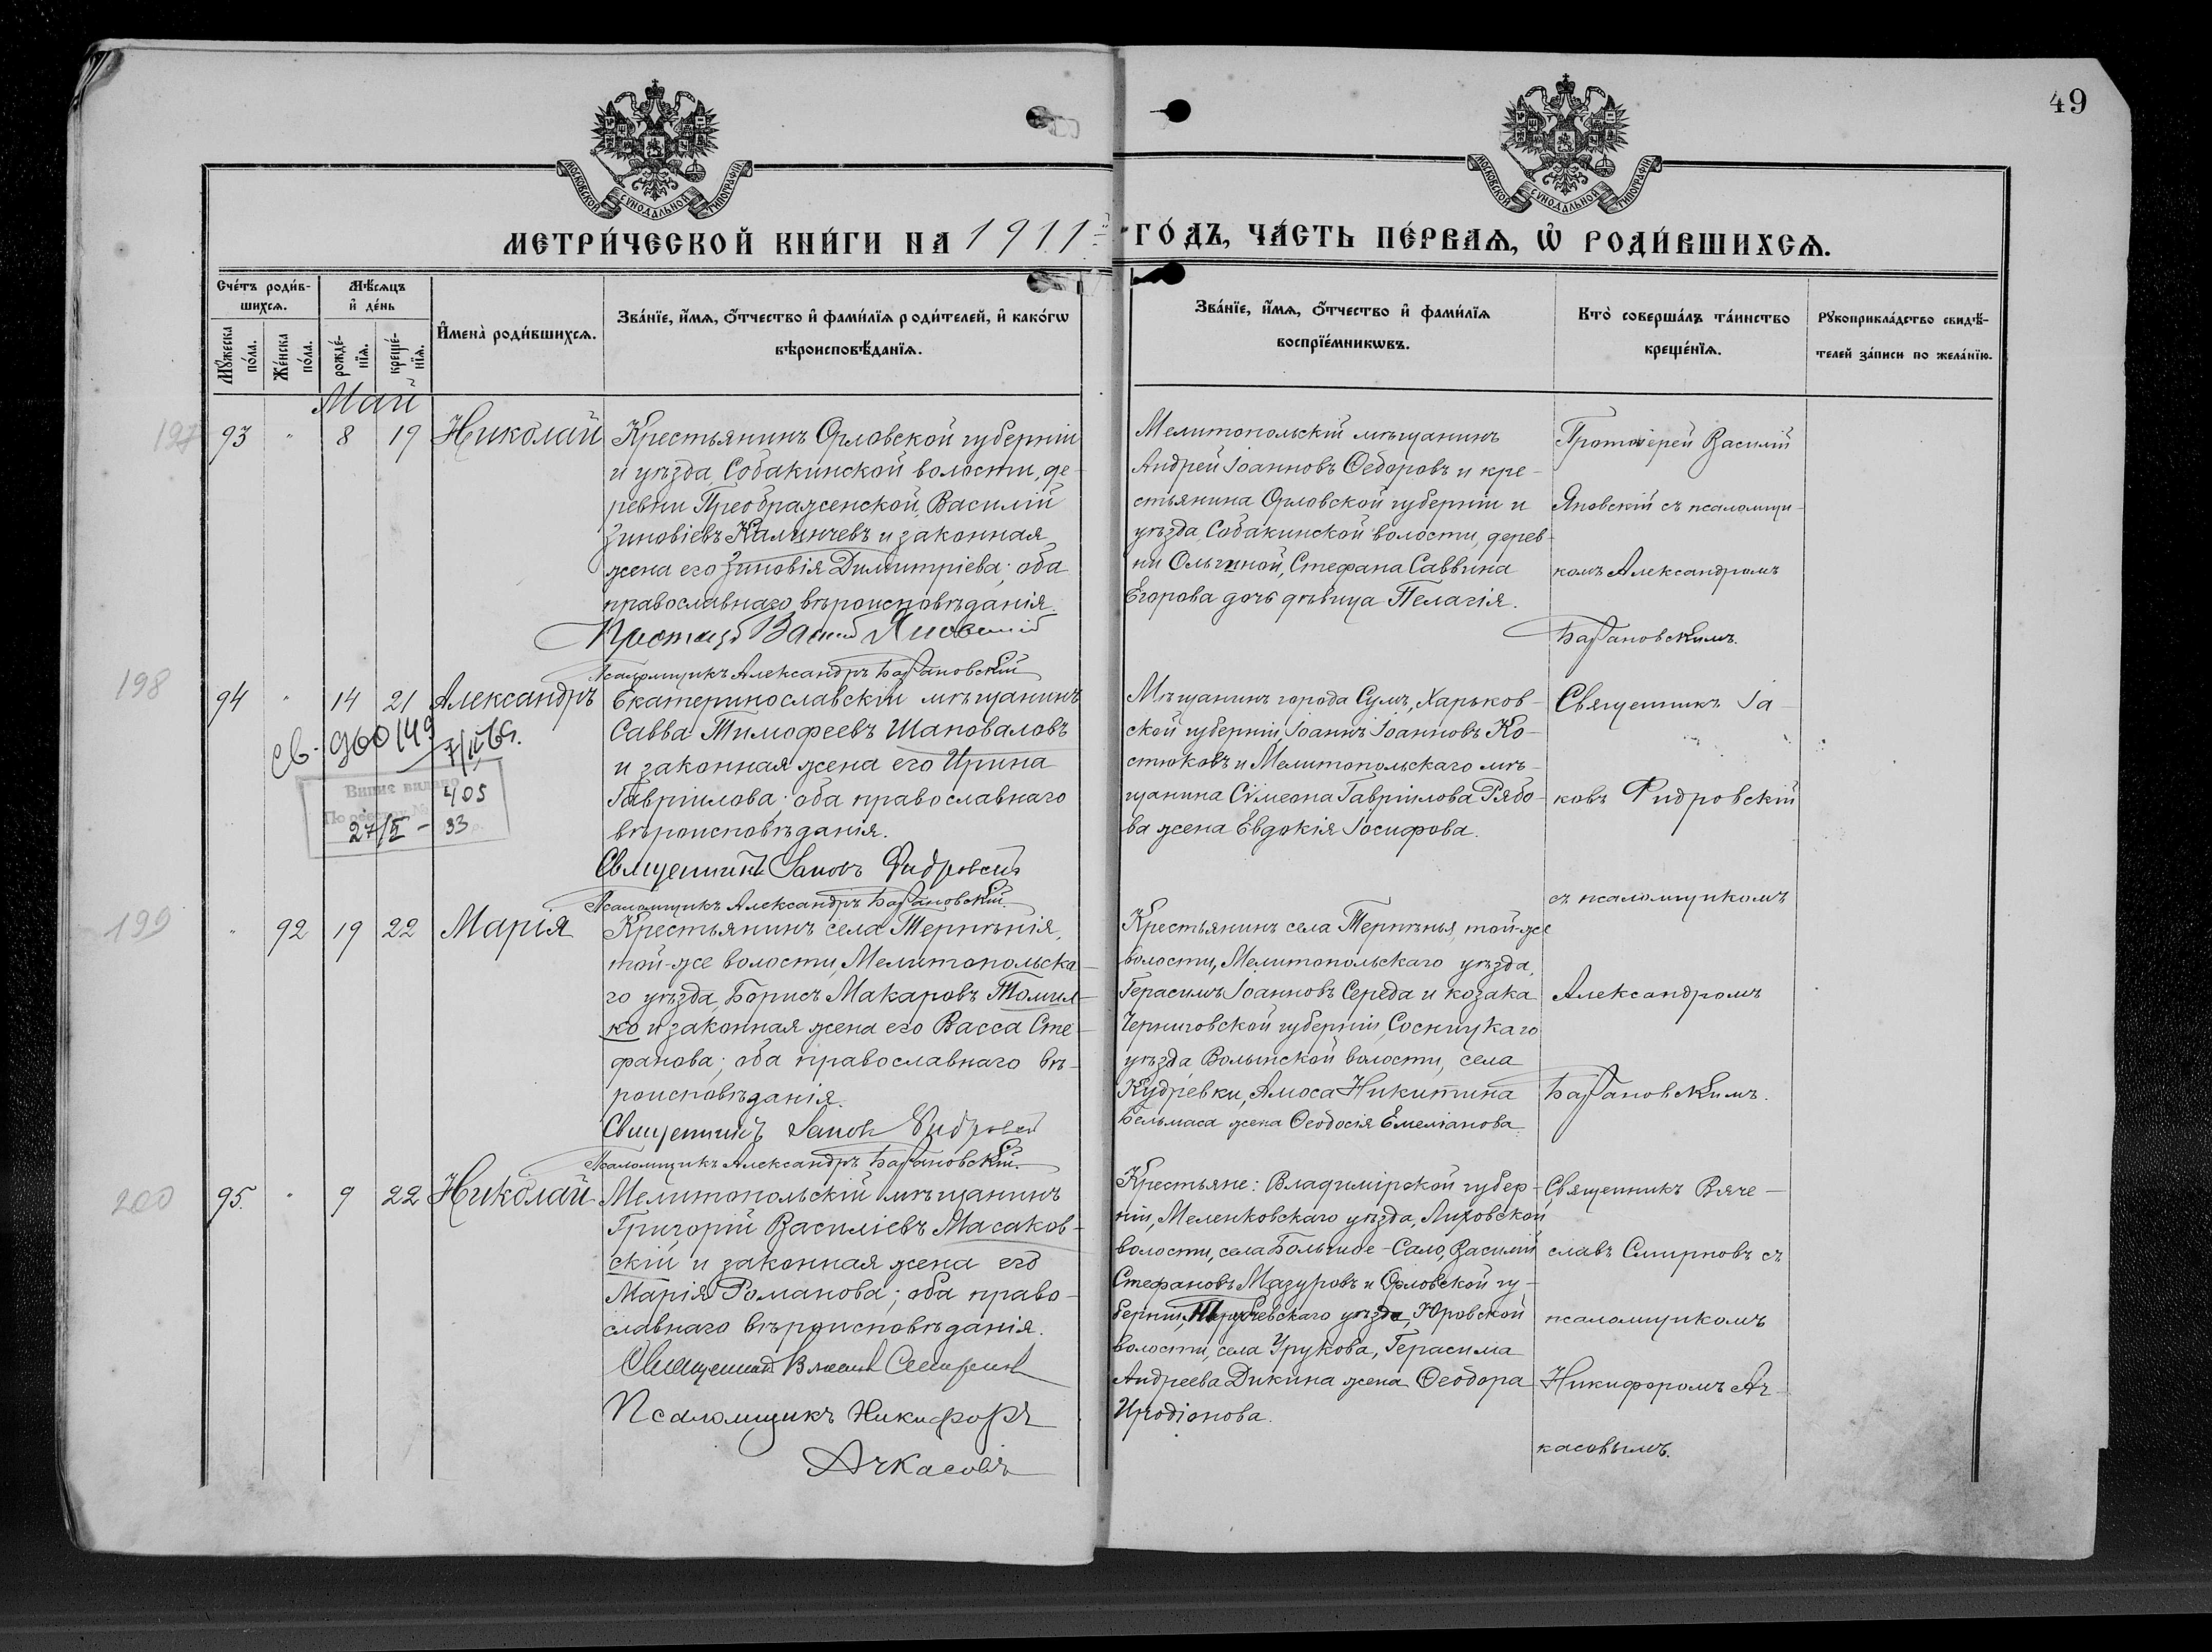 49
МОСКОВСКОЙ СУНОДАЛЬНОЙ ТИПОГРАФІИ
МОСКОВСКОЙ СУНОДАЛЬНОЙ ТИПОГРАФІИ
МЕТРИ́ЧЕСКОЙ КНИ́ГИ НА 1911й ГО́ДЪ, ЧА́СТЬ ПЕ́РВАѦ, Ѡ҆ РОДИ́ВШИХСѦ.
Сче́тъ роди́в-
шихсѧ.
Мꙋ́жеска по́ла.
Же́нска по́ла.
Мѣ́сѧцъ
и҆ де́нь
рожде́-
нїѧ.
креще́-
нїѧ.
И҆мена̀ роди́вшихсѧ.
Зва́нїе, и҆́мѧ, ѻ҆́тчество и҆ фами́лїѧ роди́телей, и҆ како́гѡ
вѣроисповѣ́данїѧ.
Зва́нїе, и҆́мѧ, ѻ҆́тчество и҆ фами́лїѧ
воспрїе́мникѡвъ.
Кто̀ соверша́лъ та́инство
креще́нїѧ.
Рꙋкоприкла́дство свидѣ́-
телей за́писи по жела́нїю.
Май
197
93 " 8 19 Николай
Крестьянинъ Орловской губерніи
и уѣзда, Собакинской волости, де-
ревни Преображенской, Василій
Зиновіевъ Калинчевъ и законная
жена его Зиновія Димитріева; оба
православнаго вѣроисповѣданія.
Протоіер Василій Яновскій
Псаломщикъ Александръ Барановскій
Мелитопольскій мѣщанинъ
Андрей Іоанновъ Ѳедоровъ и кре-
стьянина Орловской губерніи и
уѣзда, Собакинской волости, дерев-
ни Ольгиной, Стефана Саввина
Егорова дочь дѣвица Пелагія.
Протоіерей Василій
Яновскій съ псаломщи-
комъ Александромъ
Барановскимъ.
198
94 " 14 21 Александръ
св. 960149
7/II 65.
Випис видано
405
27/II - 33
Екатеринославскій мѣщанинъ
Савва Тимофеевъ Шаповаловъ
и законная жена его Ирина
Гавріилова; оба православнаго
вѣроисповѣданія.
Священникъ Іаковъ Фидровскій
Псаломщикъ Александръ Барановскій
Мѣщанинъ города Сумъ, Харьков-
ской губерніи, Іоаннъ Іоанновъ Ко-
стюковъ и Мелитопольскаго мѣ-
щанина Сѵмеона Гавріилова Рябо-
ва жена Евдокія Іосифова.
Священникъ Іа-
ковъ Фидровскій
съ псаломщикомъ
Александромъ
Барановскимъ.
199
" 92 19 22 Марія
Крестьянинъ села Терпѣнія,
той-же волости, Мелитопольска-
го уѣзда, Борисъ Макаровъ Томил-
ко и законная жена его Васса Сте-
фанова; оба православнаго вѣ-
роисповѣданія.
Священникъ Іаковъ Фидровскій
Псаломщикъ Александръ Барановскій.
Крестьянинъ села Терпѣнья, той-же
волости, Мелитопольскаго уѣзда,
Герасимъ Іоанновъ Середа и козака
Черниговской губерніи, Сосницкаго
уѣзда, Волынской волости, села
Кудревки, Амоса Никитина
Бельмаса жена Ѳеодосія Емеліанова.
200
95. " 9 22 Николай
Мелитопольскій мѣщанинъ
Григорій Василіевъ Масаков-
скій и законная жена его
Марія Романова; оба право-
славнаго вѣроисповѣданія.
Священникъ Вячеславъ Смирновъ
Псаломщикъ Никифоръ
Ачкасовъ
Крестьяне: Владимірской губер-
ніи, Меленковскаго уѣзда,
волости, села Большое-Сало, Василій
Стефановъ Мазуровъ и Орловской гу-
берніи, уѣзда, Юровской
волости, села Урукова, Герасима
Андреева Дикина жена Ѳеодора
Иродіонова.
Священникъ Вяче-
славъ Смирновъ съ
псаломщикомъ
Никифоромъ Ач-
касовымъ.